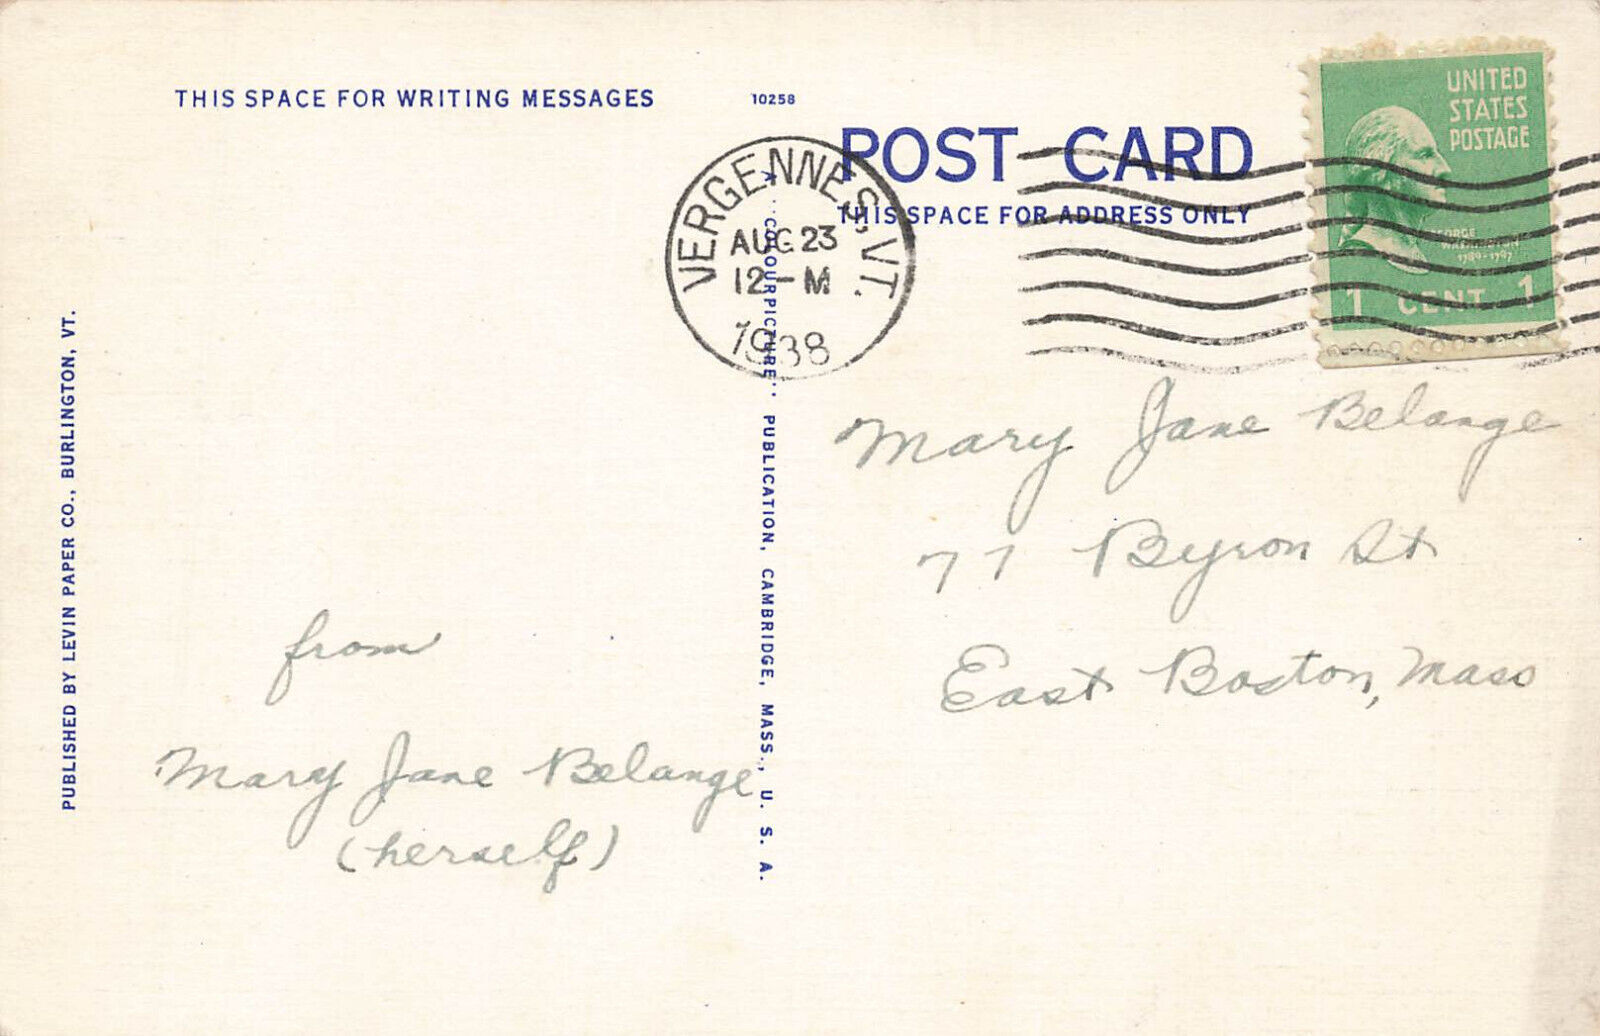 THIS SPACE FOR WRITING MESSAGES
10258
POST CARD
THIS SPACE FOR ADDRESS ONLY
UNITED
STATES
POSTAGE
GEORGE
WASHINGTON
1789-1797
1 CENT 1
VERGENNES, VT.
AUG 23
12-M
1938
PUBLISHED BY LEVIN PAPER CO., BURLINGTON, VT.
A "COLOURPICTURE" PUBLICATION, CAMBRIDGE, MASS., U. S. A.
from
Mary Jane Belange
(herself)
Mary Jane Belange
77 Byron St
East Boston, Mass